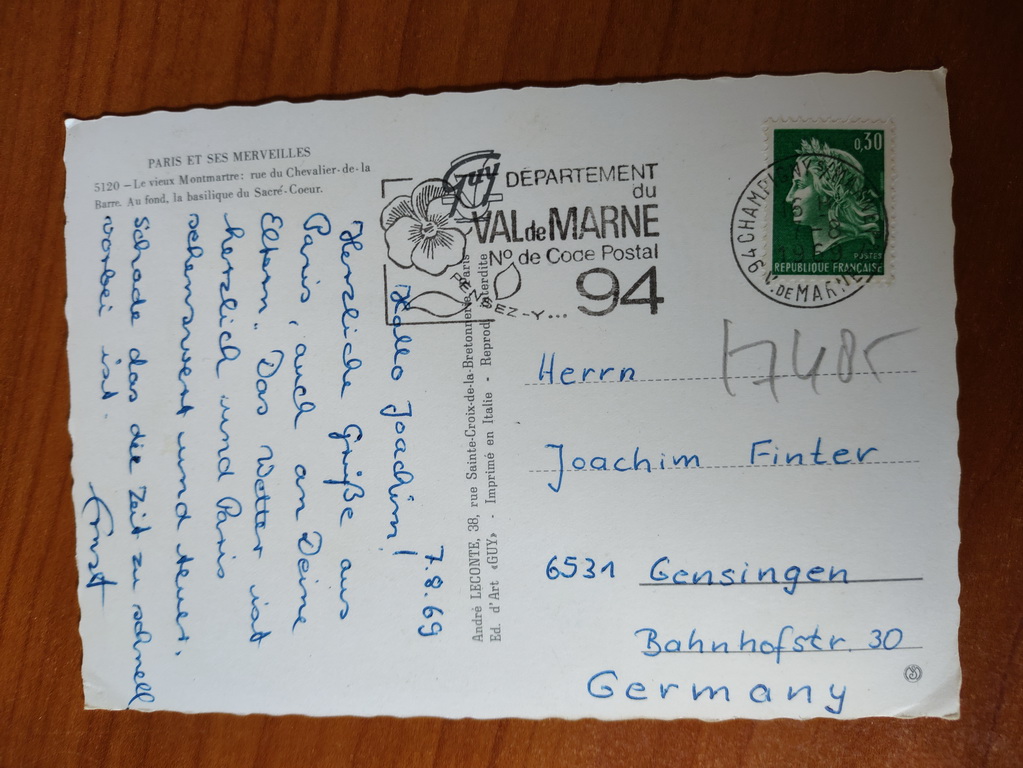 PARIS ET SES MERVEILLES
5120 – Le vieux Montmartre: rue du Chevalier-de-la
Barre. Au fond, la basilique du Sacré-Coeur.
7.8.69
Hallo Joachim!
Herzliche Grüße aus
Paris, auch an Deine
Eltern. Das Wetter ist
herzlich und Paris
sehenswert und teuer.
Schade das die Zeit zu schnell
vorbei ist.
Ernst
André LECONTE, 38, rue Sainte-Croix-de-la-Bretonnerie, Paris
Ed. d'Art «GUY» - Imprimé en Italie - Reprod. interdite
Guy
DÉPARTEMENT
du
VAL de MARNE
N° de Code Postal
94
PENSEZ-Y...
0,30
POSTES
REPUBLIQUE FRANÇAISE
94 CHAMPIGNY S/MARNE
V. DE MARNE
17485
Herrn
Joachim Finter
6531 Gensingen
Bahnhofstr. 30
Germany